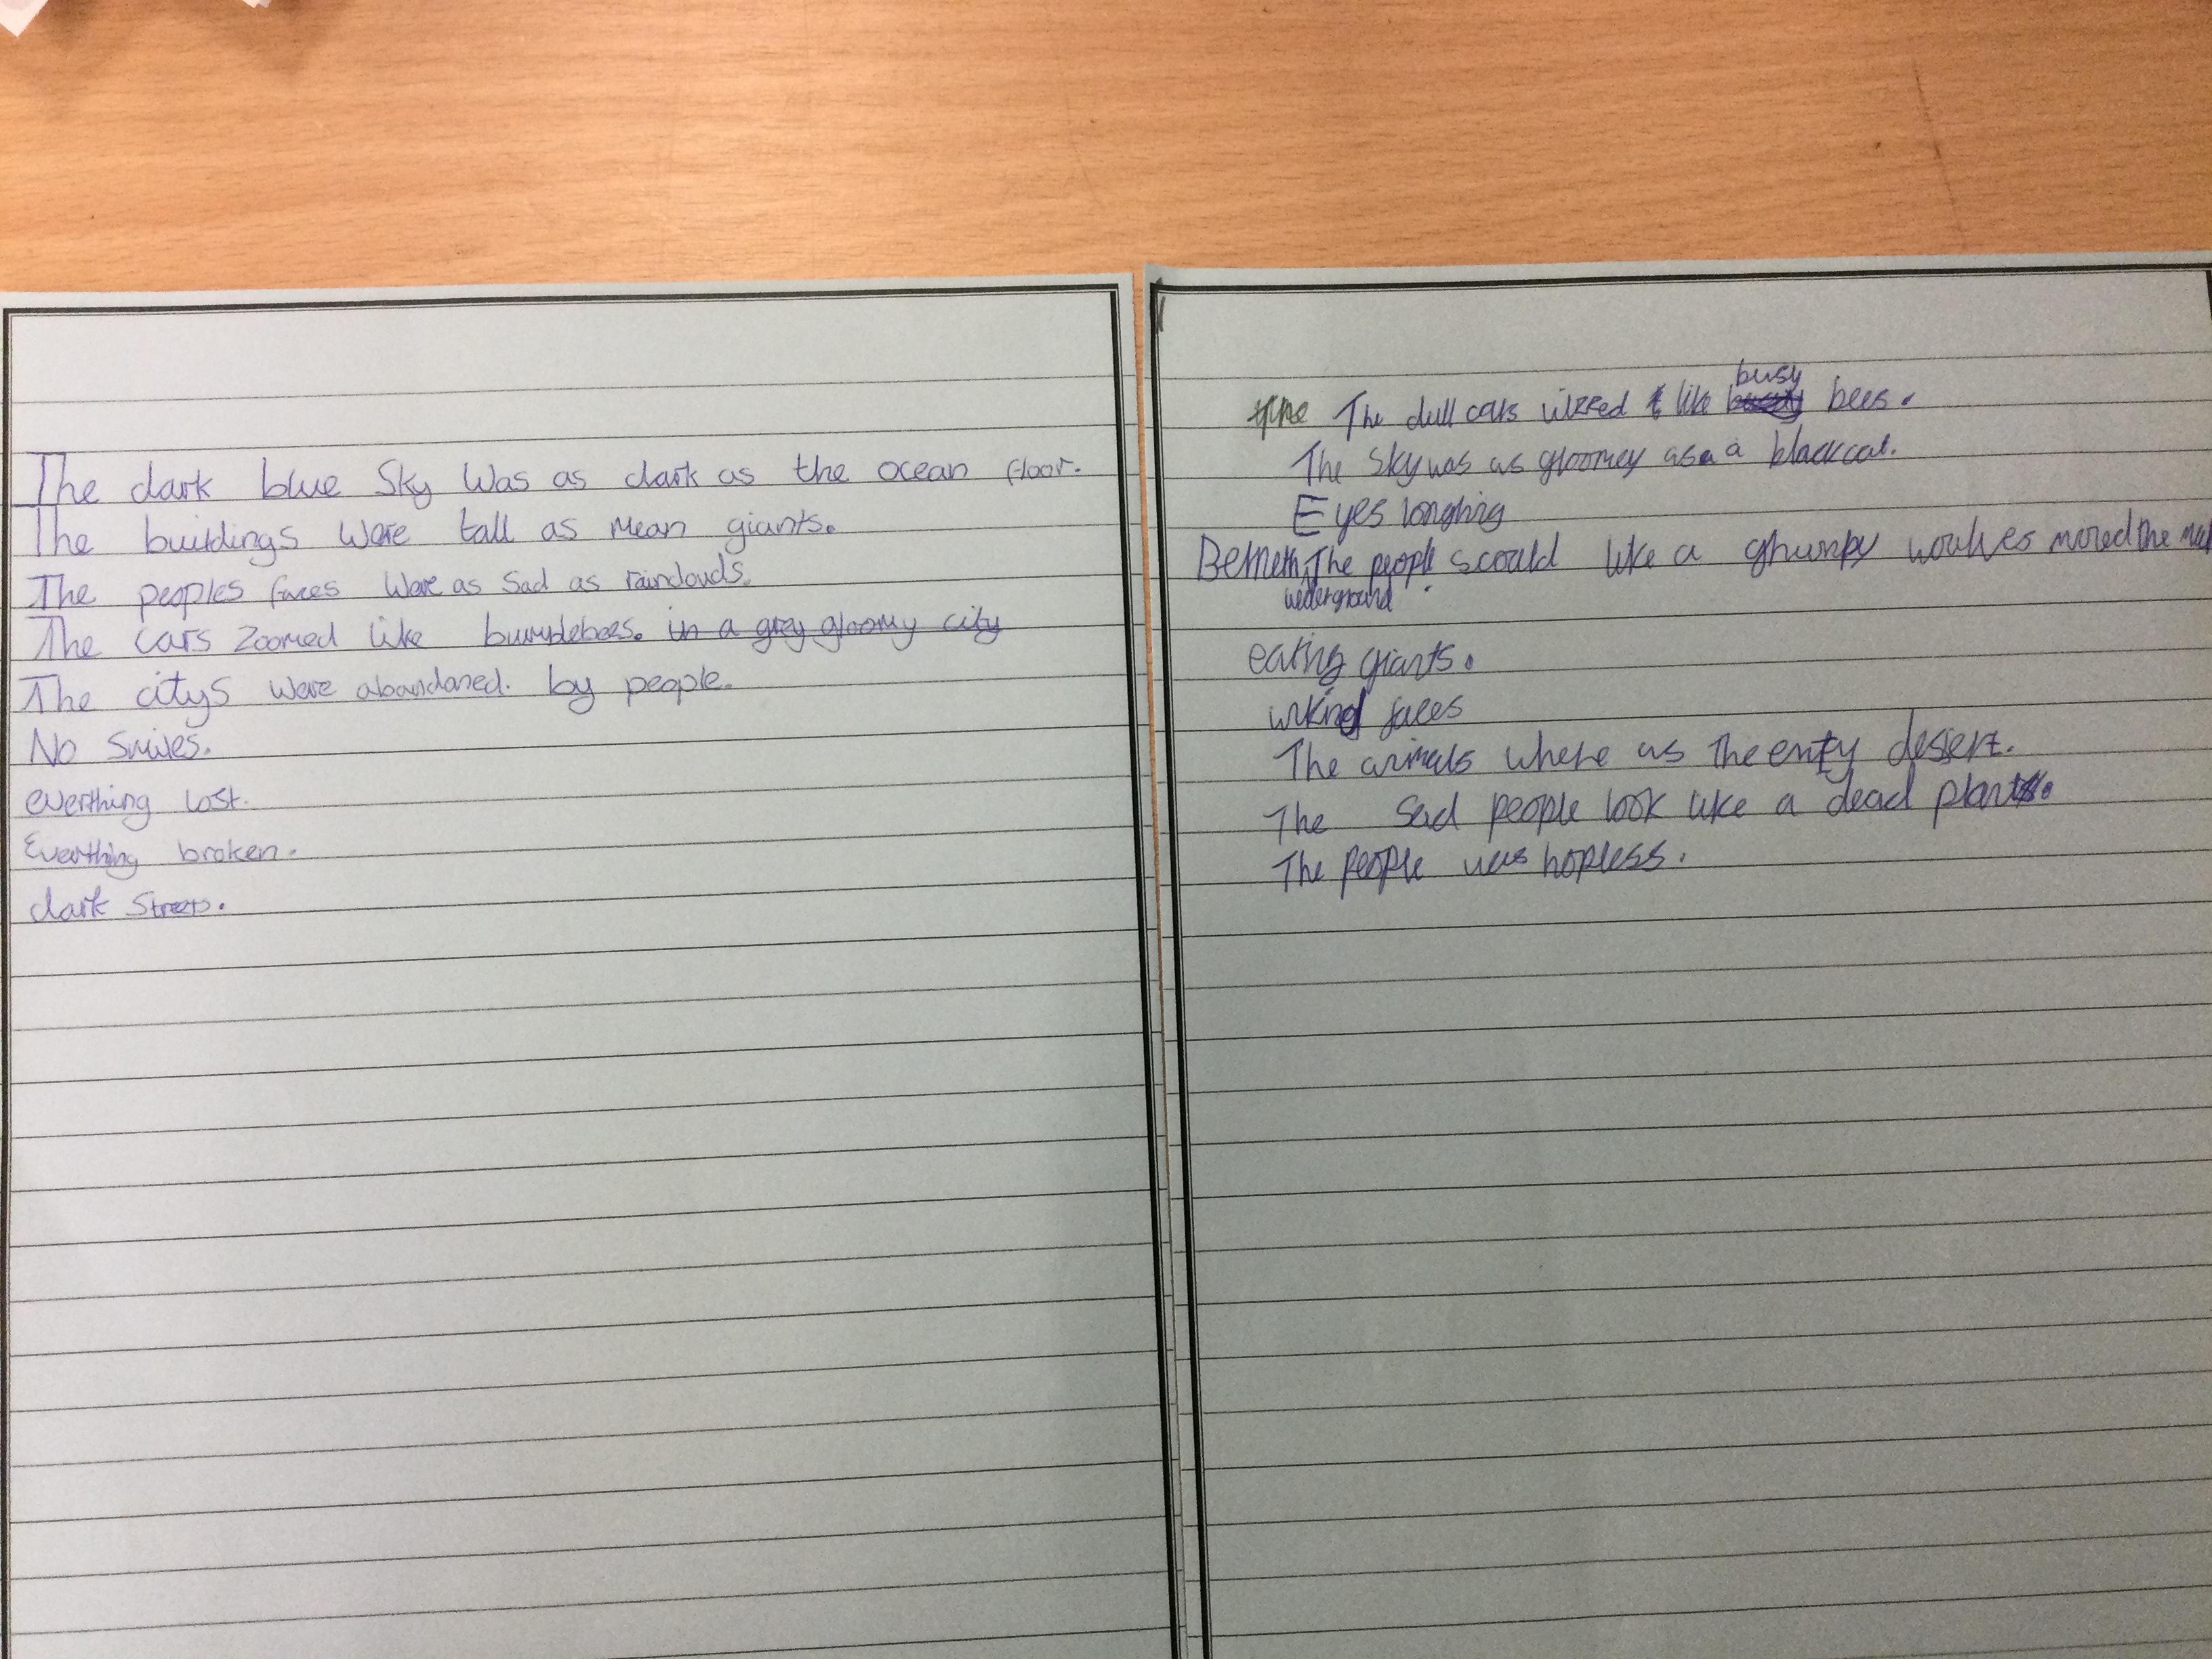 The dark blue Sky Was as dark as the ocean floor.
The buildings Were tall as mean giants.
The peoples faces Were as Sad as rainclouds.
The cars Zoomed like bumblebees. in a grey gloomy city
The citys were abandaned. by people.
No Smiles.
everthing lost.
Everthing broken.
dark Streets.
The The dull cars like busy bees.
The Sky was as gloomey as a a black cat.
Eyes longhing
The people scould like a ghumpy the
underground
eating giants.
unkind faces
The animals where as The emty desert.
The Sad people look like a dead plant.
The people was hopless.